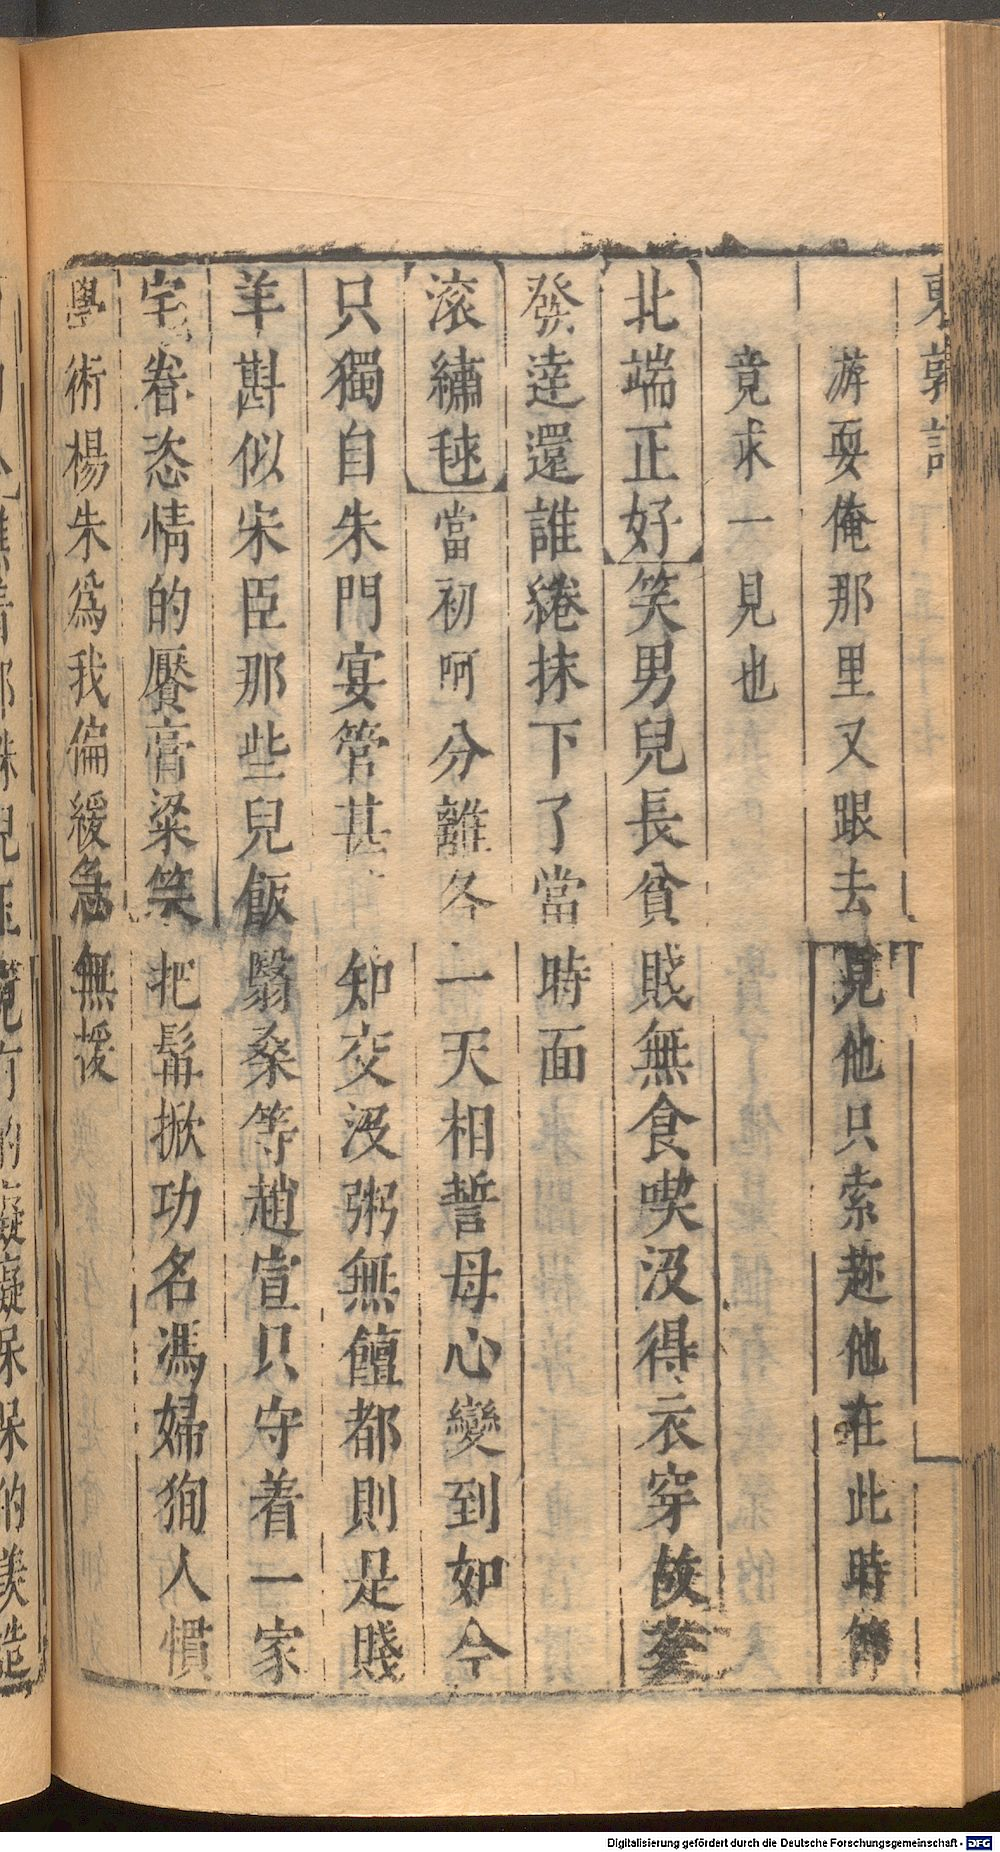 東郭記
游耍俺那里又跟去見他只索趂他在此時
竟求一見也
北端正好笑男兒長貧賤無食喫沒得衣穿
發達還誰綣抹下了當時面
滾繡毬當初呵分離各一天相誓母心變到如今
只獨自朱門宴管甚知交沒粥無饘都則是賤
羊斟似宋臣那些兒飯翳桑等趙宣只守着一家
宅眷恣情的饜膏粱笑把髯掀功名馮婦狥人慣
學術楊朱為我偏緩急無援
Digitalisierung gefördert durch die Deutsche Forschungsgemeinschaft - DFG